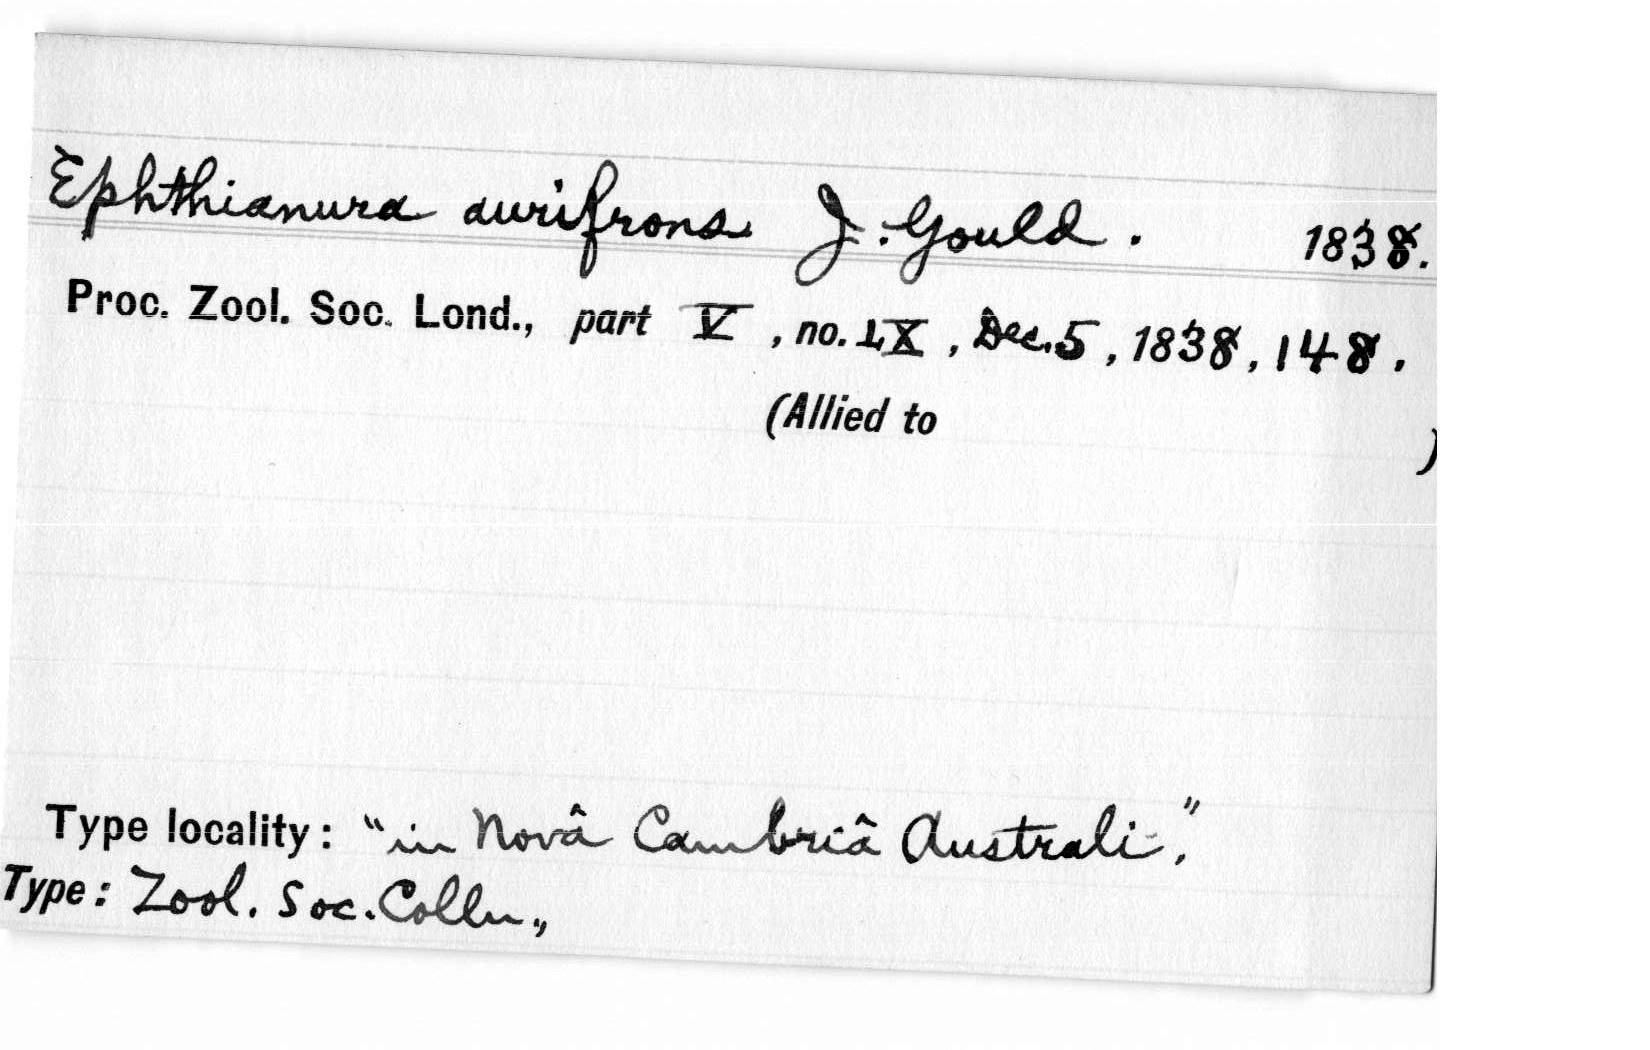 Ephthianura aurifrons J. Gould. 1838.
Proc. Zool. Soc. Lond., part V, no. LX, Dec. 5, 1838, 148.
(Allied to )
Type locality: "in Novâ Cambriâ Australi",
Type: Zool. Soc. Colln.,